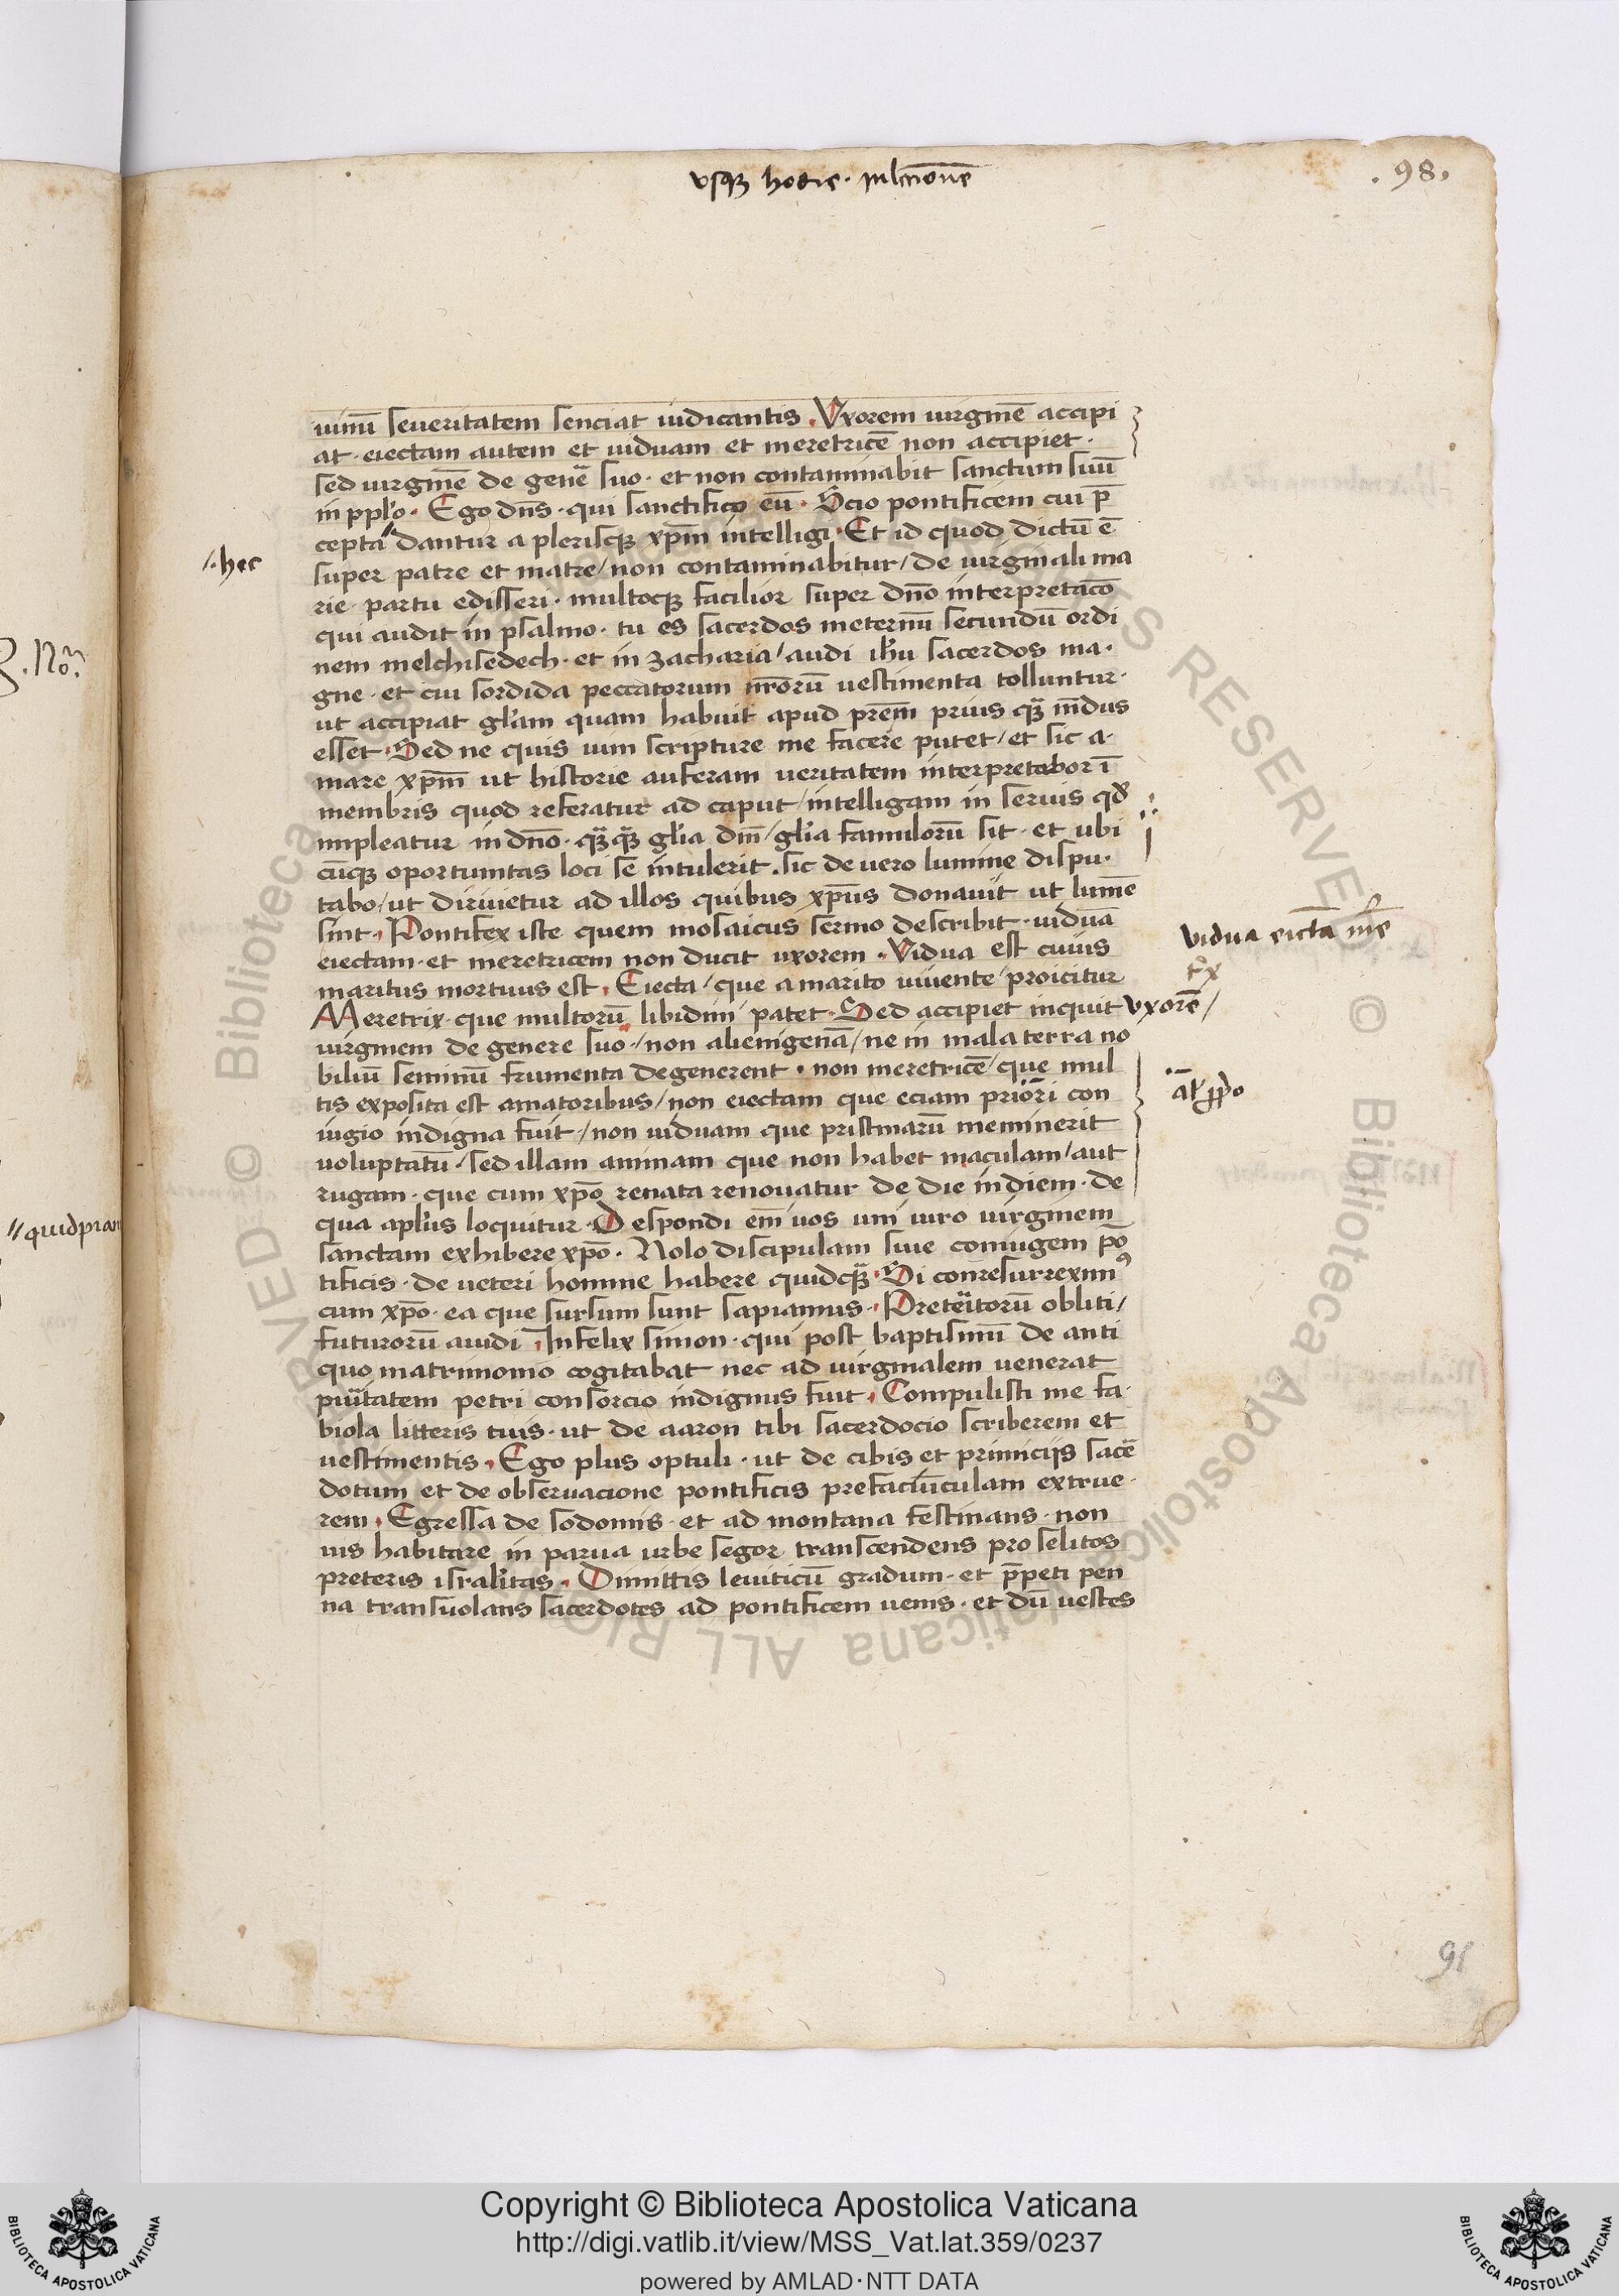 vsqz hodie. in lectione
. 98.
uinū seueritatem senciat iudicantis. Vxorem uirginē accipi
at. eiectam autem et uiduam et meretricē non accipiet.
sed uirginē de genē suo. et non contaminabit sanctum suū
in pplo. Ego dn̄s. qui sanctifico eū. Scio pontificem cui p̄
cepta // dantur a plerisqz xpm̄ intelligi. Et id quod dictū ē
//.hec
super patre et matre / non contaminabitur / de uirginali ma
rie partu edisseri. multoqz facilior super dn̄o interpretac̄o
qui audit in psalmo. tu es sacerdos ineternū secundū ordi
nem melchisedech. et in zacharia / audi ihū sacerdos ma.
gne. et cui sordida peccatorum nr̄orū uestimenta tolluntur.
ut accipiat glām quam habuit apud prēm prius qz̄ mūdus
esset. Sed ne quis uim scripture me facere putet / et sic a.
mare xpm̄ ut historie auferam ueritatem interpretabor ī
membris quod referatur ad caput / intelligam in seruis qd̄
impleatur in dn̄o. qz̄qz̄ glīa dn̄i / glīa famulorū sit. et ubi
cūqz oportunitas loci se intulerit. sic de uero lumine dispu.
tabo / ut diriuietur ad illos quibus xp̄us donauit ut lumē
sint. Pontifex iste quem mosaicus sermo describit. uiduā
eiectam. et meretricem non ducit uxorem. Vidua est cuius
vidua eiectā me
maritus mortuus est. Eiecta / que a marito uiuente / proicitur
t̄x
Meretrix. que multorū libidini patet. Sed accipiet inquit vxorē /
uirginem de genere suo. / non alienigenā / ne in mala terra no
biliū seminū frumenta degenerent. non meretricē / que mul
tis exposita est amatoribus / non eiectam que eciam priori con
iugio indigna fuit / non uiduam que pristinarū meminerit
uoluptatū. sed illam animam que non habet maculam / aut
rugam. que cum xpō renata renouatur de die in diem. de
qua aplūs loquitur. Despondi em̄ uos uni uiro uirginem
sanctam exhibere xpō. Nolo discipulam siue coniugem pō
tificis. de ueteri homine habere quidqz̄. Si conresurreximꝰ
cum xpō. ea que sursum sunt sapiamus. Preteritorū obliti /
futurorū auidi. Infelix simon. qui post baptismū de anti
quo matrimonio cogitabat nec ad uirginalem uenerat
puritatem petri consorcio indignus fuit. Compulisti me fa.
biola litteris tuis. ut de aaron tibi sacerdocio scriberem et
uestimentis. Ego plus optuli. ut de cibis et primicijs sacē
dotum et de obseruacione pontificis prefaciūculam extrue.
rem. Egressa de sodomis. et ad montana festinans. non
uis habitare in parua urbe segor transcendens proselitos
preteris isralitas. Dimittis leuiticū gradum. et p̄peti pen
na transuolans sacerdotes ad pontificem uenis. et dū uestes
91
Copyright © Biblioteca Apostolica Vaticana
http://digi.vatlib.it/view/MSS_Vat.lat.359/0237
powered by AMLAD·NTT DATA